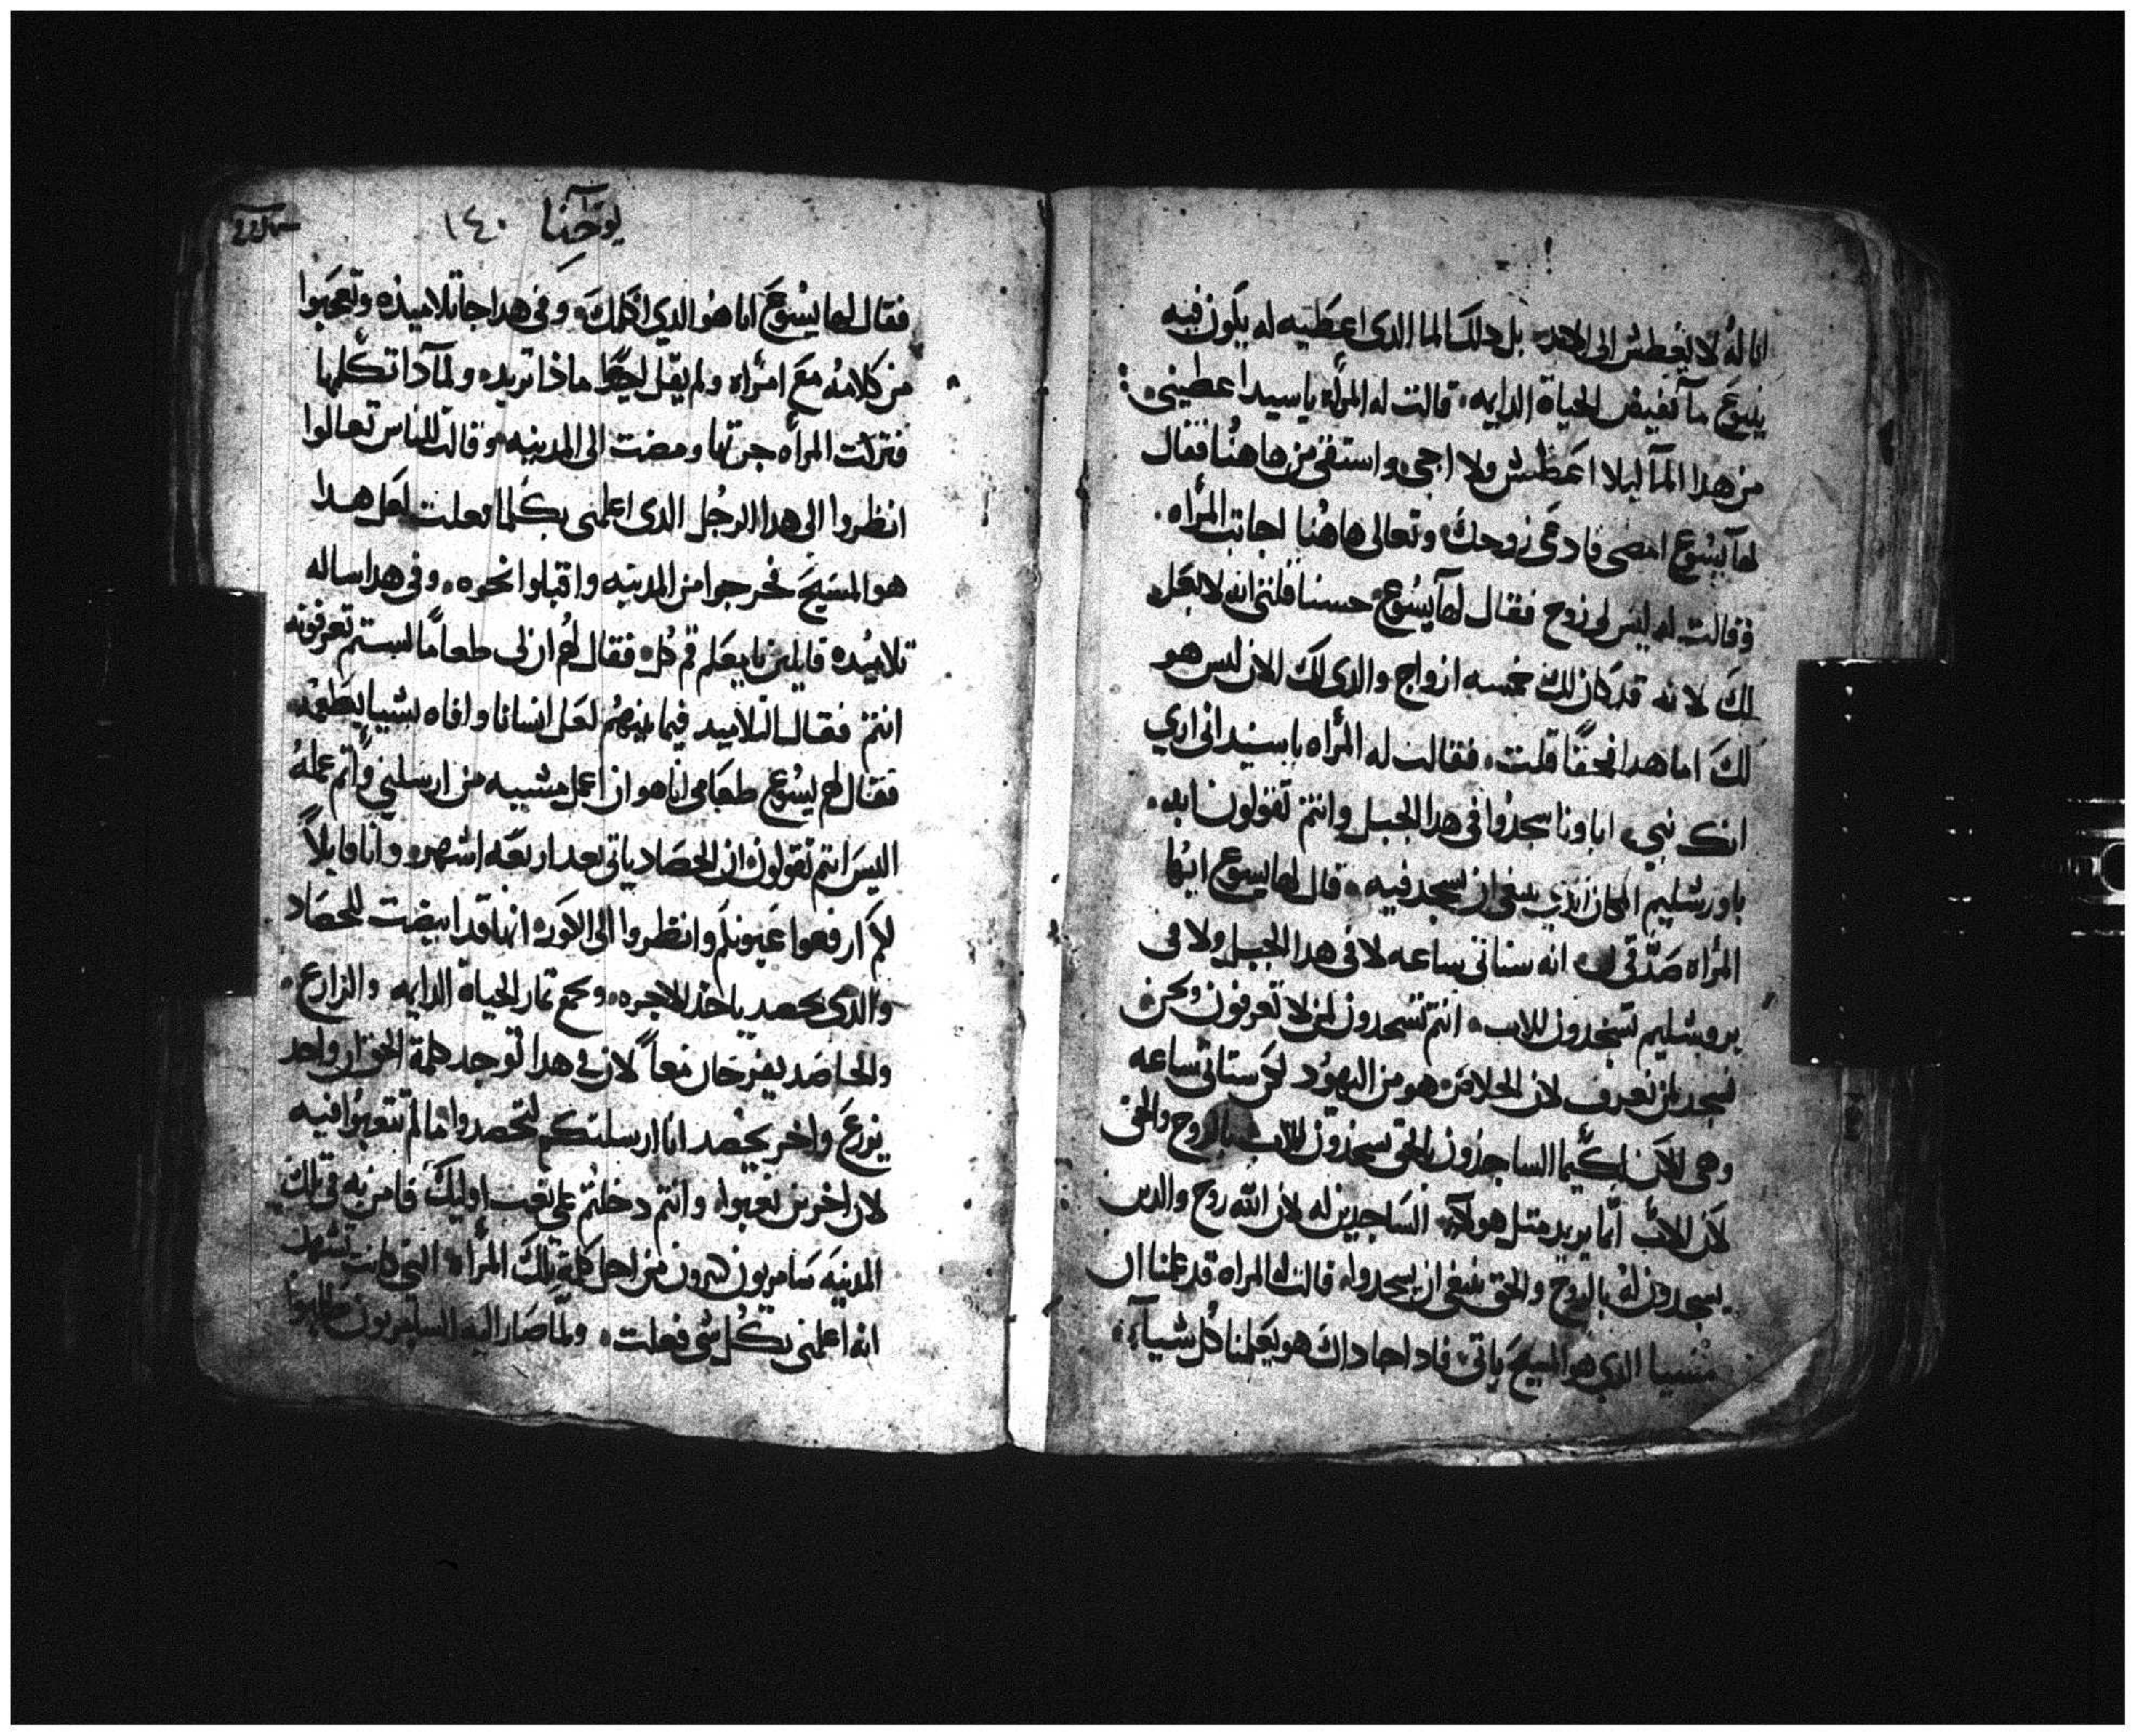 انا له لا يعطش الى الابد بل دلك الما الدى اعطيه له يكون فيه
ينبوع مآ تفيض الحياة الدايمه قالت له المرأه ياسيد اعطينى
من هدا المآ ليلا اعطش ولا اجى واستقى من هاهنا فقال
لهآ يسوع امضى فادعى زوجك وتعالى هاهنا اجابت المرأه
وقالت له ليس لى زوج فقال لهآ يسوع حسنا قلتى انه لا بعل
لك لانه قد كان لك خمسه ازواج والدى لك الان ليس هو
لك اما هدا فحقا قلت فقالت له المرأه ياسيد انى ارى
انك نبى اباونا سجدوا فى هدا الجبل وانتم تقولون انه
باورشليم المكان الذي ينبغى ان يسجد فيه قال لها يسوع ايتها
المرأه صدقى انه ستاتى ساعه لا فى هدا الجبل ولا فى
يروشليم تسجدون للاب انتم تسجدون لمن لا تعرفون ونحن
نسجد لمن نعرف لان الخلاص هو من اليهود لكن ستاتى ساعه
وهى الآن لكيما الساجدون بالحق يسجدون للاب بالروح والحق
لان الاب انما يريد مثل هولاى الساجدين له لان الله روح والدين
يسجدون له بالروح والحق ينبغى ان يسجدوا قالت له المراه قد علمنا ان
مسيا الدي هو المسيح ياتى فادا جا داك هو يعلمنا كل شيآ
يوحنا ١٤٠
فقال لها يسوع انا هو الدي اكلمك وفى هدا جا تلاميذه وتعجبوا
من كلامه مع امرأه ولم يقل احد ماذا تريد ولمآدا تكلمها
فتركت المرأه جرتها ومضت الى المدينه وقالت للناس تعالوا
انظروا الى هدا الرجل الدى اعلمنى بكلما فعلت لعل هدا
هو المسيح فخرجوا من المدينه واقبلوا نحوه وفى هدا ساله
تلاميده قايلين يا معلم قم كل فقال لهم ان لى طعاما لستم تعرفونه
انتم فقال التلاميد فيما بينهم لعل انسانا وافاه بشيا يطعمه
فقال لهم يسوع طعامى انا هو ان اعمل مشييه من ارسلنى واتم عمله
اليس انتم تقولون ان الحصاد ياتى بعد اربعه اشهر وانا قايلاً
لكم ارفعوا عيونكم وانظروا الى الكوره انها قد ابيضت للحصاد
والدى يحصد ياخذ الاجره ويجمع ثمار الحياة الدايمه والزارع
والحاصد يفرحان معاً لان فى هدا توجد كلمة الحق ان واحد
يزرع واخر يحصد انا ارسلتكم لتحصدوا ما لم تتعبوا فيه
لان اخرين تعبوا وانتم دخلتم على تعب اوليك فامن به فى تلك
المدينه سامريون كثيرون من اجل كلمة تلك المرأه التى كانت تشهد
انه اعلمنى بكل شى فعلت ولما صار اليه السامريون طلبوا